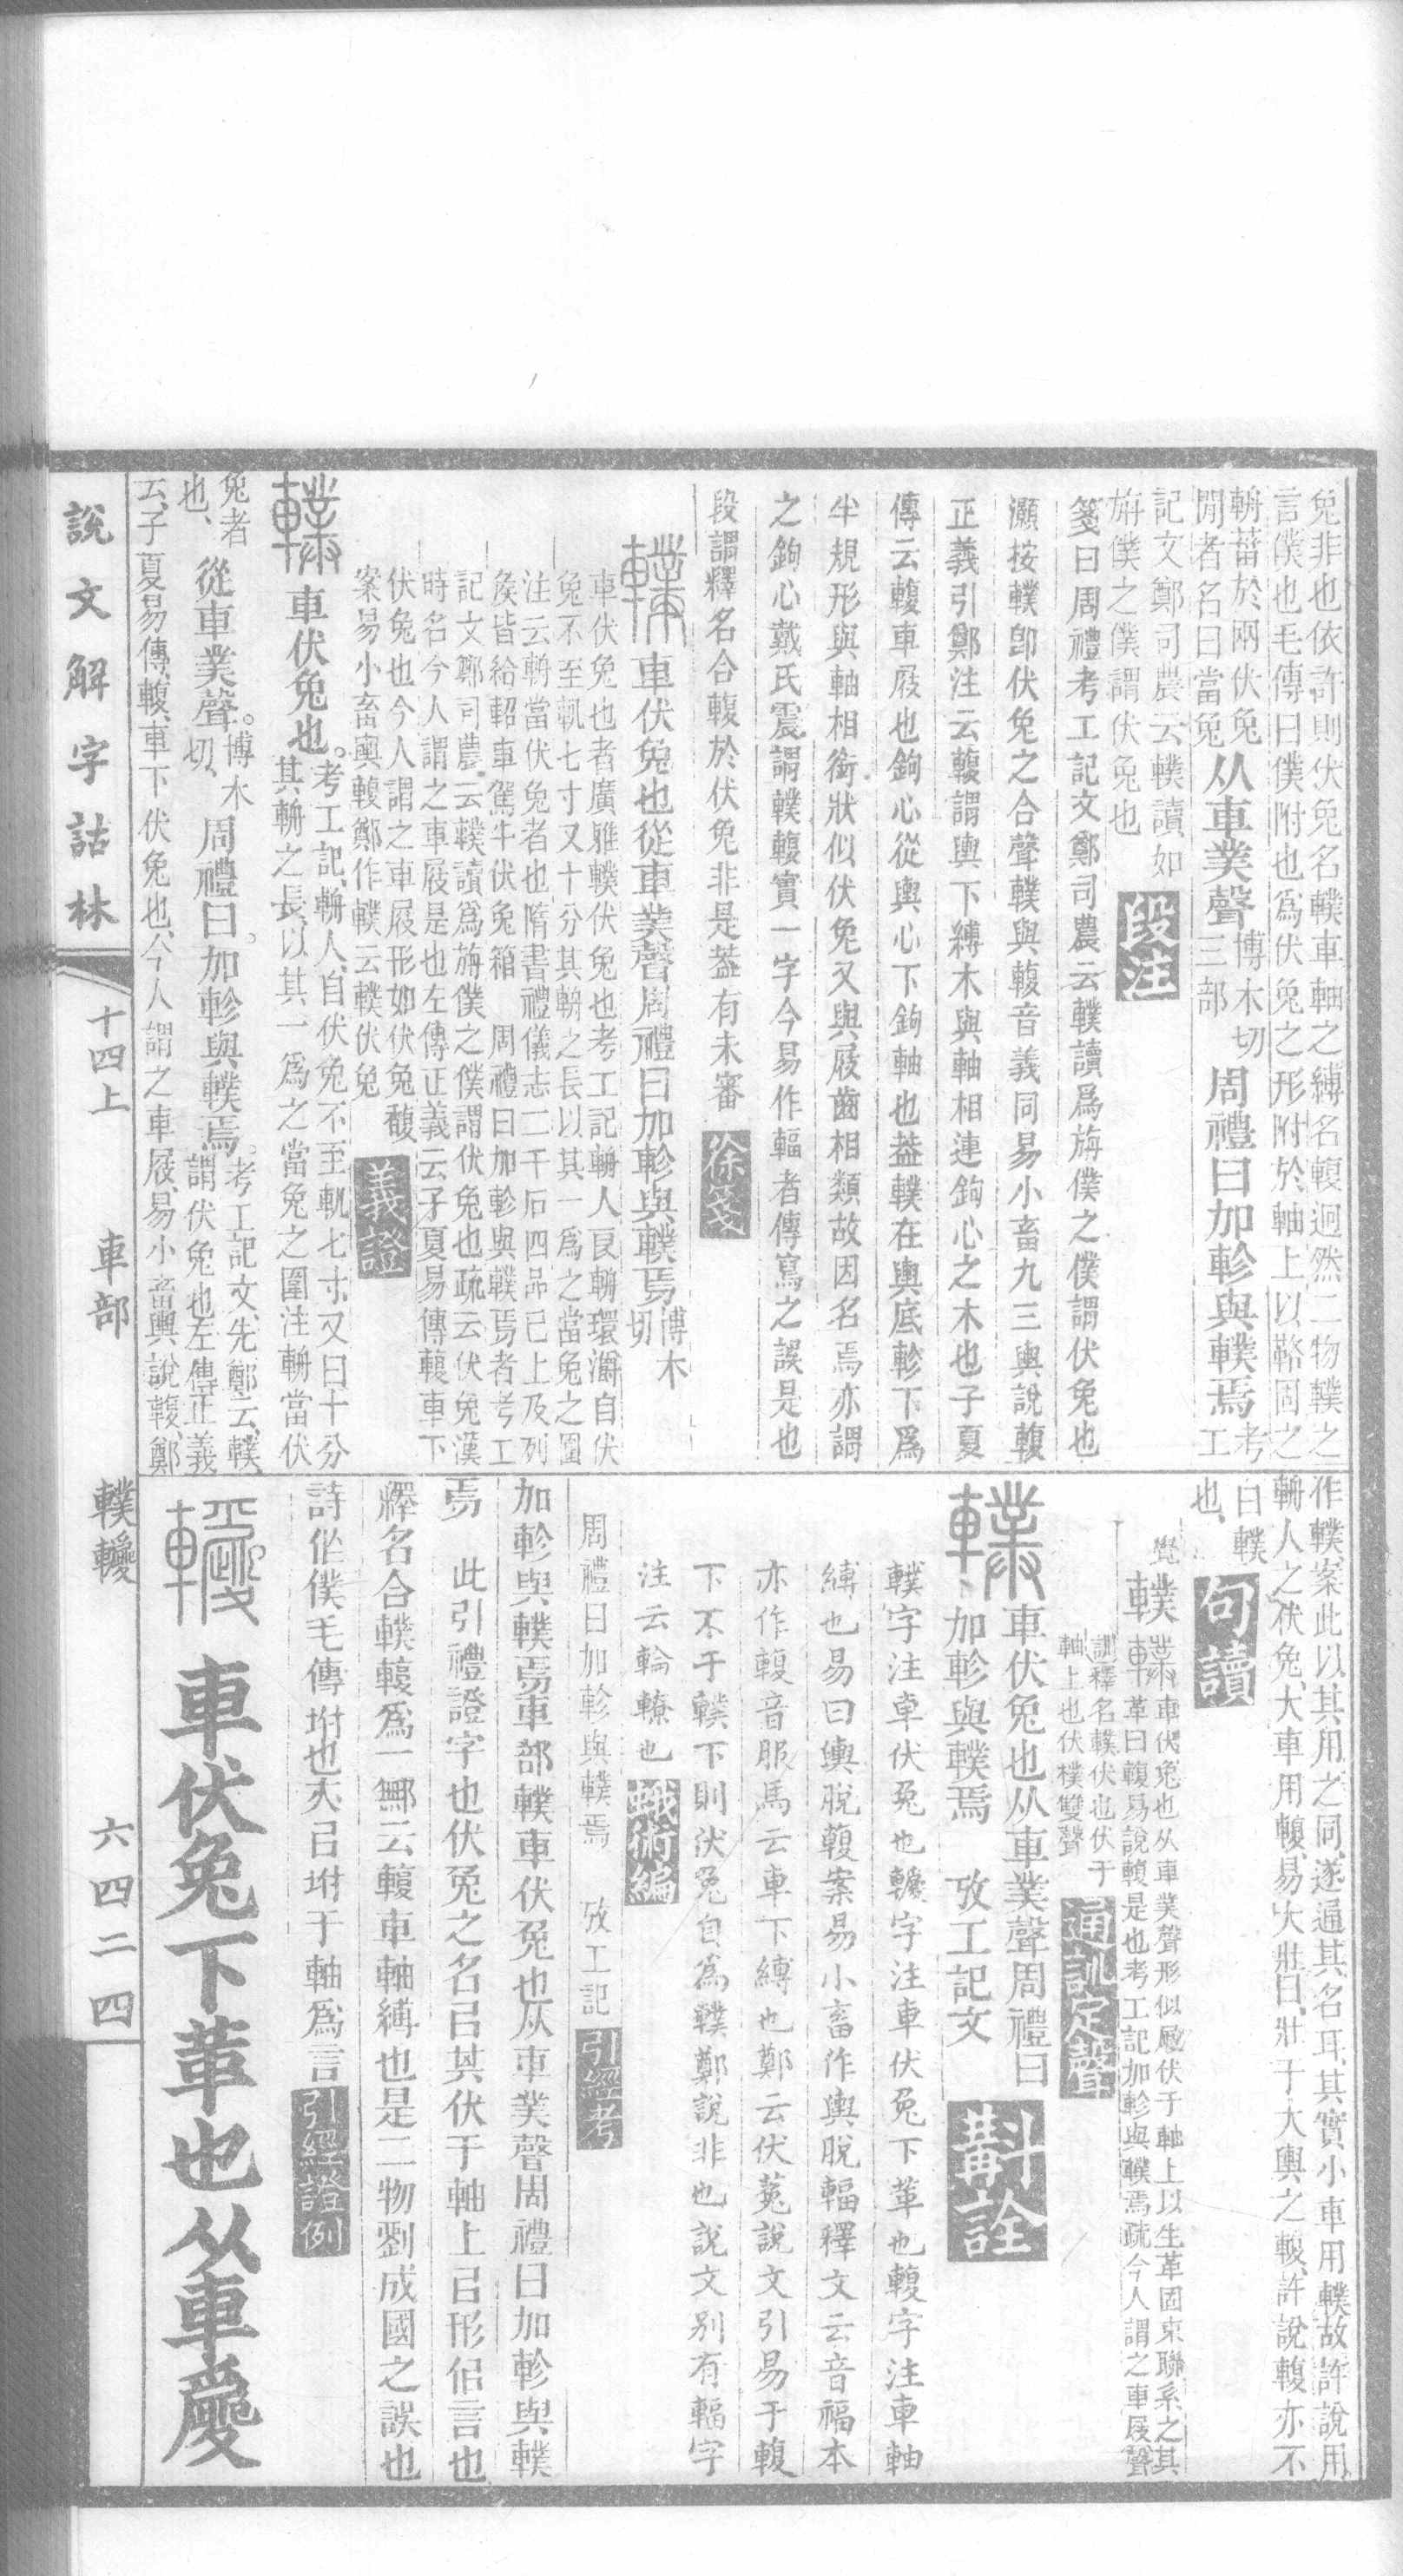 兔非也依許則伏兔名轐車軸之縛名輹迥然二物轐之
言僕也毛傳曰僕附也爲伏兔之形附於軸上以鞶固之
輈菑於兩伏兔
閒者名曰當兔
从車菐聲
博木切
三部
周禮曰加軫與轐焉
考
工
記文鄭司農云轐讀如
旃僕之僕謂伏兔也
段注
箋曰周禮考工記文鄭司農云轐讀爲旃僕之僕謂伏兔也
灝按轐卽伏兔之合聲轐與輹音義同易小畜九三輿說輹
正義引鄭注云輹謂輿下縛木與軸相連鉤心之木也子夏
傳云輹車屐也鉤心從輿心下鉤軸也葢轐在輿底軫下爲
半規形與軸相銜狀似伏兔又與屐齒相類故因名焉亦謂
之鉤心戴氏震謂轐輹實一字今易作輻者傳寫之誤是也
段謂釋名合輹於伏兔非是葢有未審
徐箋
車伏兔也從車菐聲周禮曰加軫與轐焉
博木
切
車伏兔也者廣雅轐伏兔也考工記輈人良輈環灂自伏
兔不至軌七寸又十分其輈之長以其一爲之當兔之圍
注云輈當伏兔者也隋書禮儀志二千石四品已上及列
侯皆給軺車駕牛伏兔箱 周禮曰加軫與轐焉者考工
記文鄭司農云轐讀爲旃僕之僕謂伏兔也疏云伏兔漢
時名今人謂之車屐是也左傳正義云子夏易傳輹車下
伏兔也今人謂之車屐形如伏兔 馥
案易小畜輿輹鄭作轐云轐伏兔
義證
車伏兔也。
考工記、輈人、自伏兔不至軌七寸、又曰十分
其輈之長、以其一爲之當兔之圍注、輈當伏
兔者
也、
從車菐聲。
博木
切、
周禮曰。加軫與轐焉。
考工記文、先鄭云、轐、
謂伏兔也、左傳正義
云、子夏易傳、輹、車下伏兔也、今人謂之車屐、易小畜輿說輹、鄭
作轐、案此以其用之同、遂通其名耳、其實小車用轐、故許說用
輈人之伏兔、大車用輹、易大壯曰、壯于大輿之輹、許說輹亦不
曰轐
也、
句讀
覺
轐
車伏兔也从車菐聲形似屐伏于軸上以生革固束聯系之其
革曰輹易說輹是也考工記加軫與轐焉疏今人謂之車屐聲
訓釋名轐伏也伏于
軸上也伏樸雙聲
通訓定聲
車伏兔也从車菐聲周禮曰
加軫與轐焉 攷工記文
斠詮
轐字注車伏兔也轐字注車伏兔下革也輹字注車軸
縛也易曰輿脫輹案易小畜作輿脫輻釋文云音福本
亦作輹音服馬云車下縛也鄭云伏菟說文引易于輹
下不于轐下則伏兔自爲轐鄭說非也說文別有輻字
注云輪轑也
蛾術編
周禮曰加軫與轐焉 攷工記
引經考
加軫與轐焉車部轐車伏兔也从車菐聲周禮曰加軫與轐
焉 此引禮證字也伏兔之名㠯其伏于軸上㠯形佀言也
釋名合轐輹爲一鄦云輹車軸縛也是二物劉成國之誤也
詩佀僕毛傳坿也亦㠯坿于軸爲言
引經證例
車伏兔下革也从車㥶
說文解字詁林
十四上
車部
轐
六四二四